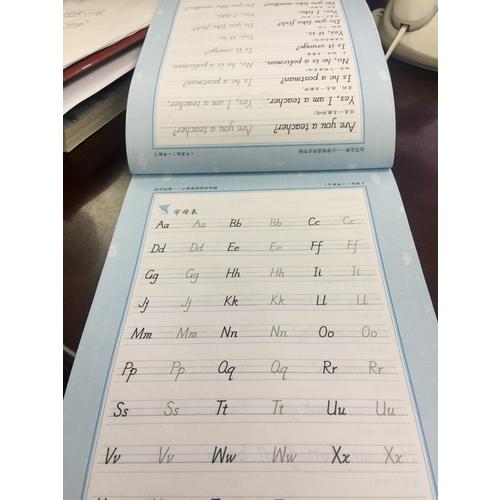 Are you a teacher? Are you a teacher?
Yes, I am a teacher. Yes, I am a teacher.
Is he a postman? Is he a postman?
No, he is a policman. No, he is a policman.
Is it orange? Is it orange?
Yes, it is. Yes, it is.
Do you like fish? Do you like fish?
Yes, I like. Yes, I like.
字母表
Aa Aa Bb Bb Cc Cc
Dd Dd Ee Ee Ff Ff
Gg Gg Hh Hh Ii Ii
Jj Jj Kk Kk Ll Ll
Mm Mm Nn Nn Oo Oo
Pp Pp Qq Qq Rr Rr
Ss Ss Tt Tt Uu Uu
Vv Vv Ww Ww Xx Xx